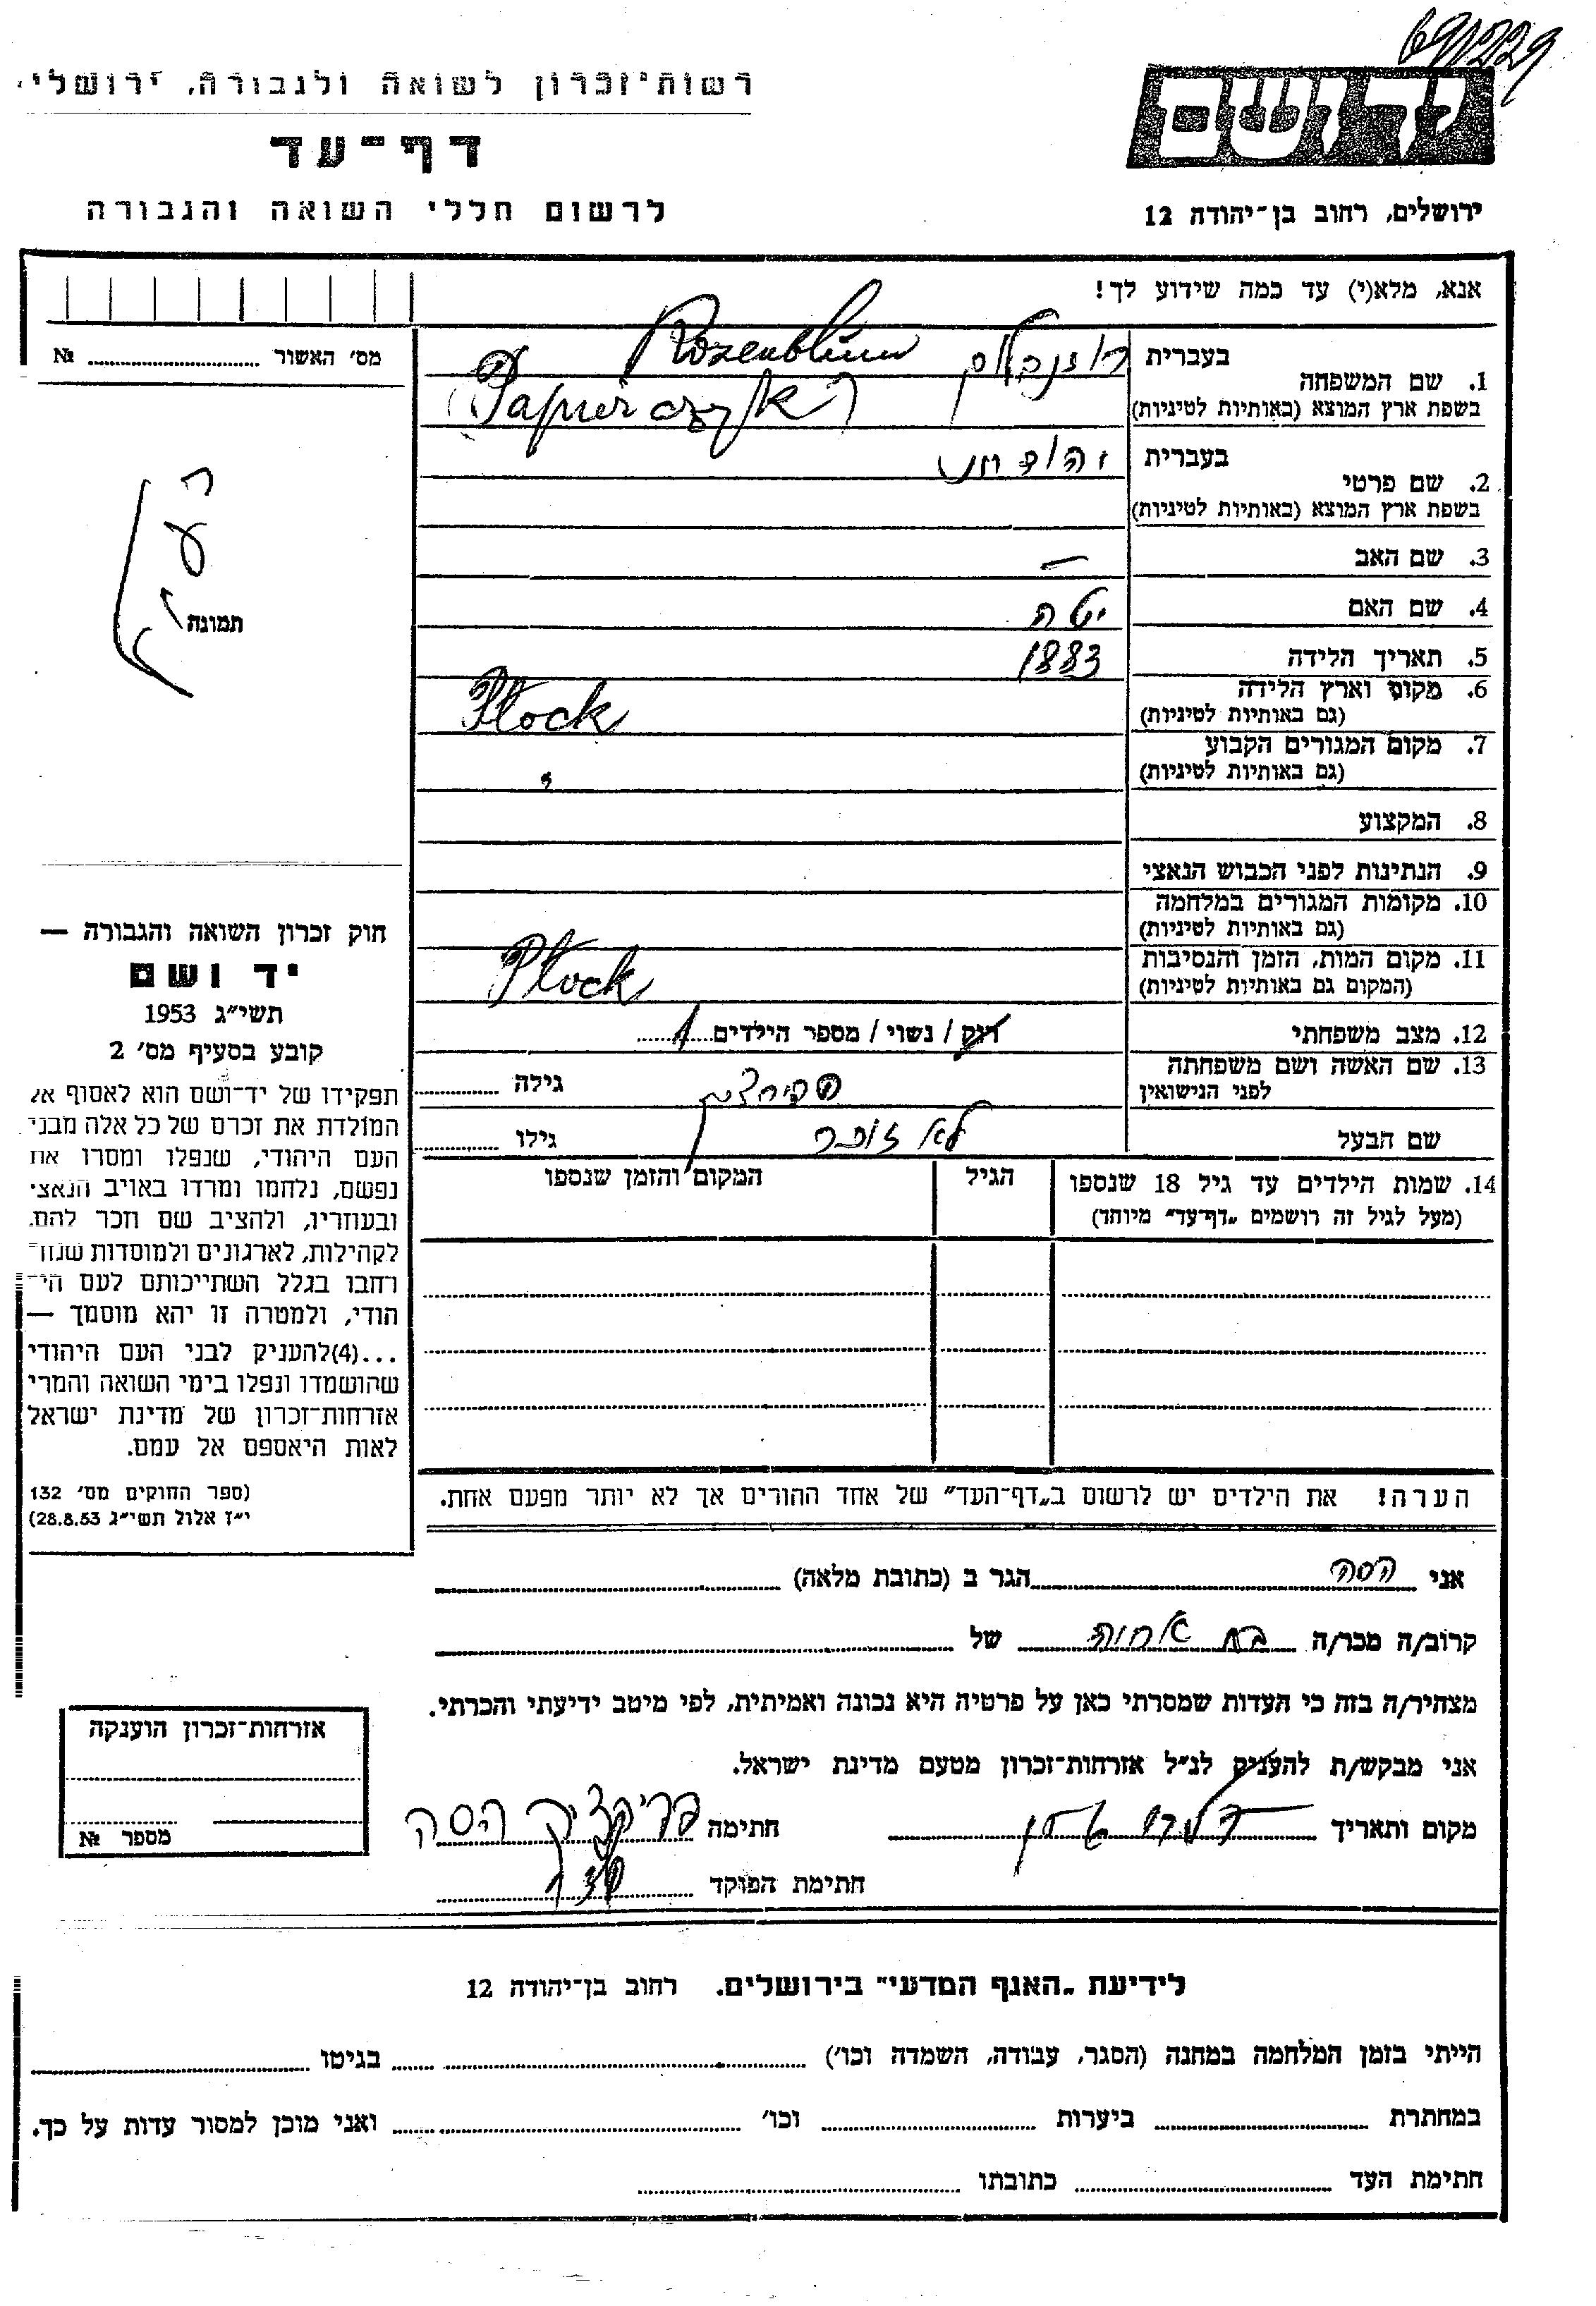 רשות־זכרון לשואה ולגבורה, ירושלי
דף־עד
לרשום חללי השואה והגבורה
יד ושם
ירושלים, רחוב בן־יהודה 12
אנא, מלא(י) עד כמה שידוע לך!
מס׳ האשור № 
1. שם המשפחה
בעברית רוזנבלום Rosenblum
בשפת ארץ המוצא (באותיות לטיניות) Papierczyk
2. שם פרטי
בעברית
בשפת ארץ המוצא (באותיות לטיניות)
3. שם האב —
4. שם האם יטה
5. תאריך הלידה 1883
6. מקום וארץ הלידה Płock
(גם באותיות לטיניות)
7. מקום המגורים הקבוע
(גם באותיות לטיניות)
8. המקצוע
9. הנתינות לפני הכבוש הנאצי
10. מקומות המגורים במלחמה
(גם באותיות לטיניות)
11. מקום המות, הזמן והנסיבות Płock
(המקום גם באותיות לטיניות)
12. מצב משפחתי רוק / נשוי / מספר הילדים 1
13. שם האשה ושם משפחתה גילה
לפני הנישואין
שם הבעל לא זוכר גילו
14. שמות הילדים עד גיל 18 שנספו הגיל המקום והזמן שנספו
(מעל לגיל זה רושמים „דף־עד״ מיוחד)
הערה! את הילדים יש לרשום ב„דף־העד״ של אחד ההורים אך לא יותר מפעם אחת.
תמונה
חוק זכרון השואה והגבורה —
יד ושם
תשי״ג 1953
קובע בסעיף מס׳ 2
תפקידו של יד־ושם הוא לאסוף אל
המולדת את זכרם של כל אלה מבני
העם היהודי, שנפלו ומסרו את
נפשם, נלחמו ומרדו באויב הנאצי
ובעוזריו, ולהציב שם וזכר להם,
לקהילות, לארגונים ולמוסדות שנח־
רחבו בגלל השתייכותם לעם הי־
הודי, ולמטרה זו יהא מוסמך —
...(4)להעניק לבני העם היהודי
שהושמדו ונפלו בימי השואה והמרי
אזרחות־זכרון של מדינת ישראל
לאות היאספם אל עמם.
(ספר החוקים מס׳ 132
י״ז אלול תשי״ג 28.8.53)
אני הסה הגר ב (כתובת מלאה)
קרוב/ה מכר/ה בת אחיה של
מצהיר/ה בזה כי העדות שמסרתי כאן על פרטיה היא נכונה ואמיתית, לפי מיטב ידיעתי והכרתי.
אני מבקש/ת להעניק לנ״ל אזרחות־זכרון מטעם מדינת ישראל.
מקום ותאריך חתימה הסה
חתימת הפוקד
אזרחות־זכרון הוענקה
מספר №
לידיעת „האגף המדעי״ בירושלים. רחוב בן־יהודה 12
הייתי בזמן המלחמה במחנה (הסגר, עבודה, השמדה וכו׳) בגיטו
במחתרת ביערות וכו׳ ואני מוכן למסור עדות על כך.
חתימת העד כתובתו